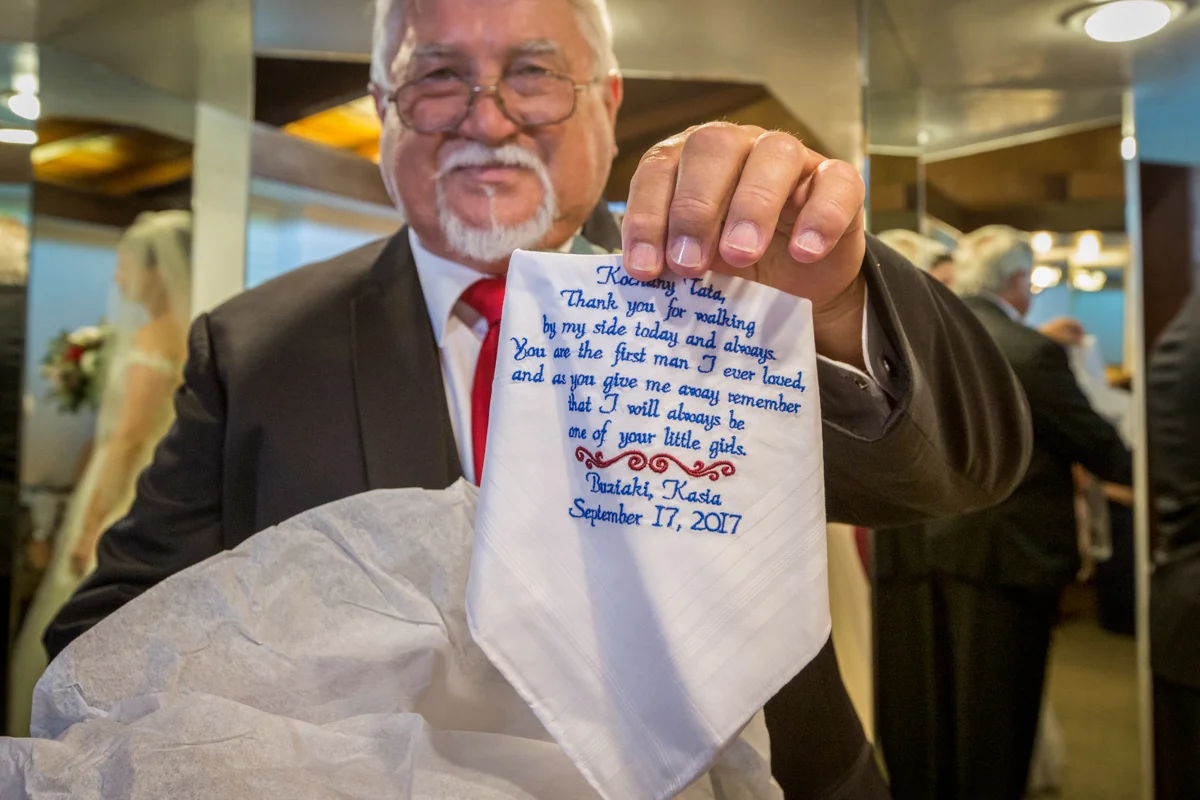 Kochany Tata,
Thank you for walking
by my side today and always.
You are the first man I ever loved,
and as you give me away remember
that I will always be
one of your little girls.
Buziaki, Kasia
September 17, 2017